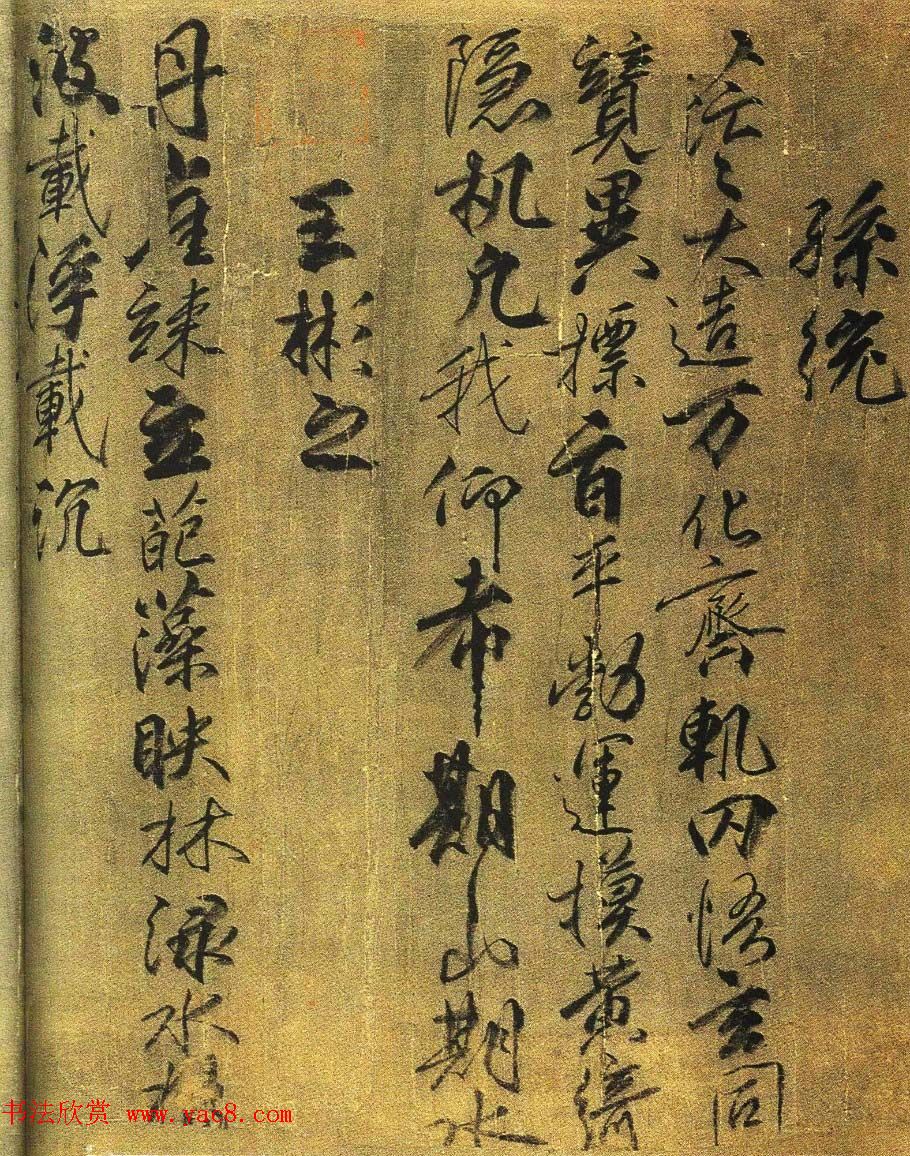 孫統
茫〻大造万化齊軌罔悟玄同
競異標旨平勃運摸黃綺
隱机凡我仰希期山期水
王彬之
丹崖竦立葩藻映林淥水揚
波載浮載沉
书法欣赏 www.yac8.com